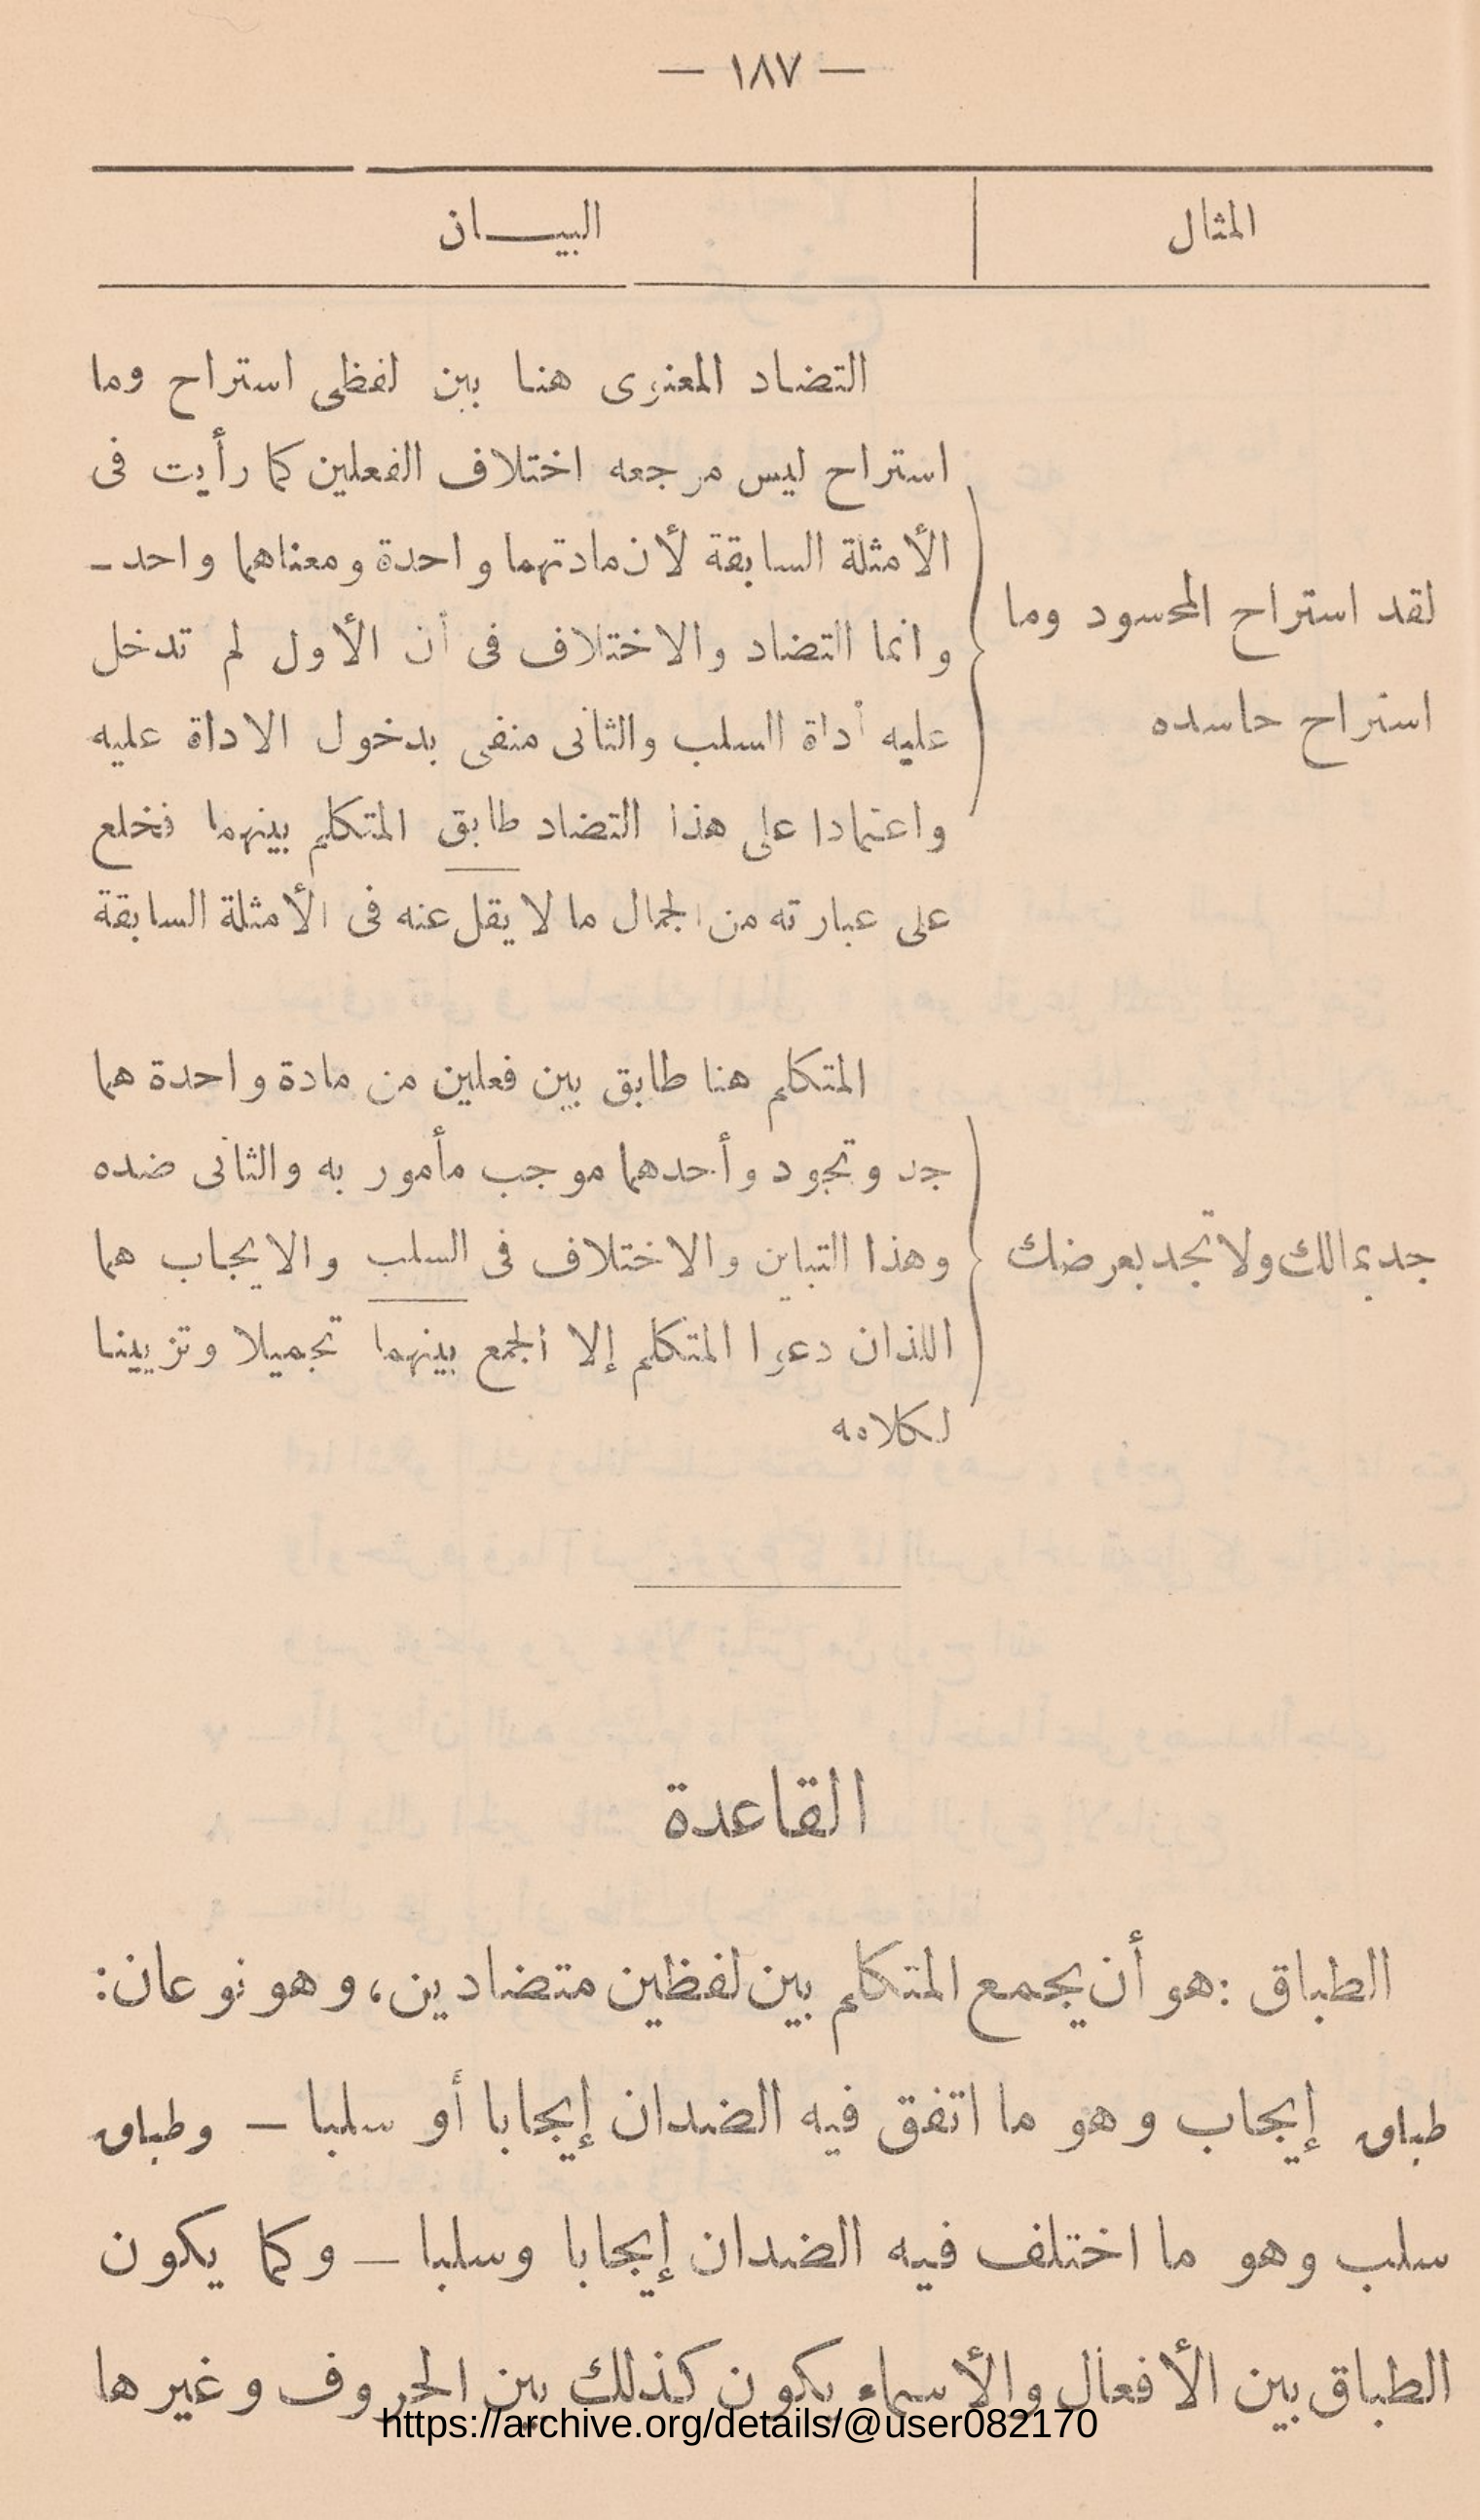 — ١٨٧ —
المثال
البيـــان
لقد استراح المحسود وما
استراح حاسده
التضاد المعنوى هنا بين لفظى استراح وما
استراح ليس مرجعه اختلاف الفعلين كما رأيت فى
الأمثلة السابقة لأن مادتهما واحدة ومعناهما واحد ـ
وانما التضاد والاختلاف فى أن الأول لم تدخل
عليه أداة السلب والثانى منفى بدخول الاداة عليه
واعتمادا على هذا التضاد طابق المتكلم بينهما فخلع
على عبارته من الجمال ما لا يقل عنه فى الأمثلة السابقة
جد بمالك ولا تجد بعرضك
المتكلم هنا طابق بين فعلين من مادة واحدة هما
جد وتجود وأحدهما موجب مأمور به والثانى ضده
وهذا التباين والاختلاف فى السلب والايجاب هما
اللذان دعوا المتكلم إلا الجمع بينهما تجميلا وتزيينا
لكلامه
القاعدة
الطباق : هو أن يجمع المتكلم بين لفظين متضادين، وهو نوعان:
طباق إيجاب وهو ما اتفق فيه الضدان إيجابا أو سلبا — وطباق
سلب وهو ما اختلف فيه الضدان إيجابا وسلبا — وكما يكون
الطباق بين الأفعال والأسماء يكون كذلك بين الحروف وغيرها
https://archive.org/details/@user082170